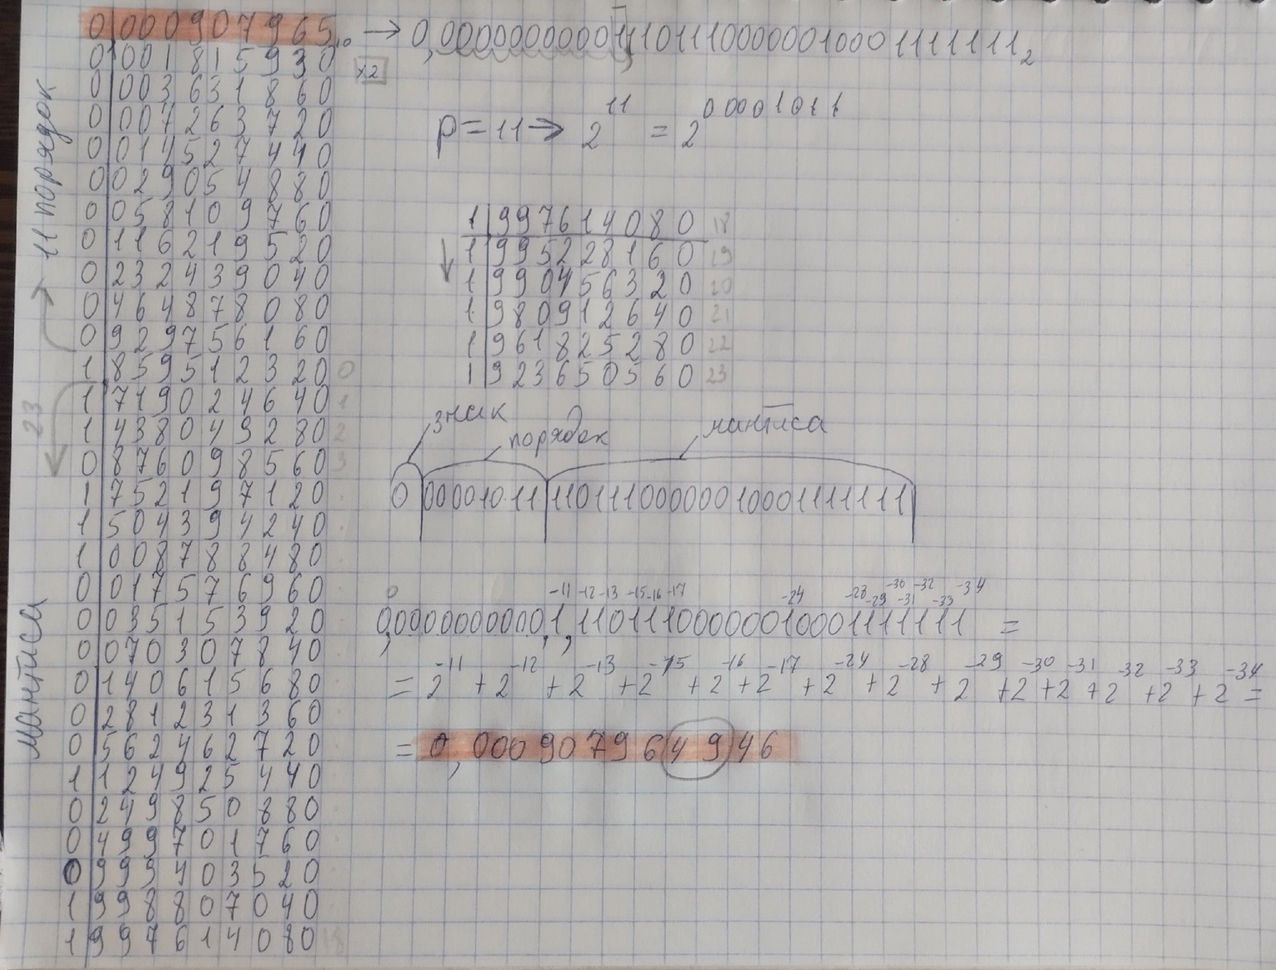 0|000907965₁₀ → 0,0000000000111011100000010001111111₂
0|001815930 x2
0|003631860
0|007263720
0|014527440
0|029054880
0|058109760
0|116219520
0|232439040
0|464878080
0|929756160
1|859512320 0
1|719024640 1
1|438049280 2
0|876098560 3
1|752197120
1|504394240
1|008788480
0|017576960
0|035153920
0|070307840
0|140615680
0|281231360
0|562462720
1|124925440
0|249850880
0|499701760
0|999403520
1|998807040
1|997614080 18
11 порядок
23
мантиса
p=11→ 2¹¹ = 2⁰⁰⁰⁰¹⁰¹¹
1|997614080 18
1|995228160 19
1|990456320 20
1|980912640 21
1|961825280 22
1|923650560 23
знак порядок мантиса
0|00001011|11011100000010001111111
0
-11 -12 -13 -15 -16 -17 -24 -28 -29 -30 -31 -32 -33 -34
0,00000000001,11011100000010001111111 =
= 2⁻¹¹ + 2⁻¹² + 2⁻¹³ + 2⁻¹⁵ + 2⁻¹⁶ + 2⁻¹⁷ + 2⁻²⁴ + 2⁻²⁸ + 2⁻²⁹ + 2⁻³⁰ + 2⁻³¹ + 2⁻³² + 2⁻³³ + 2⁻³⁴ =
= 0,00090796494​6